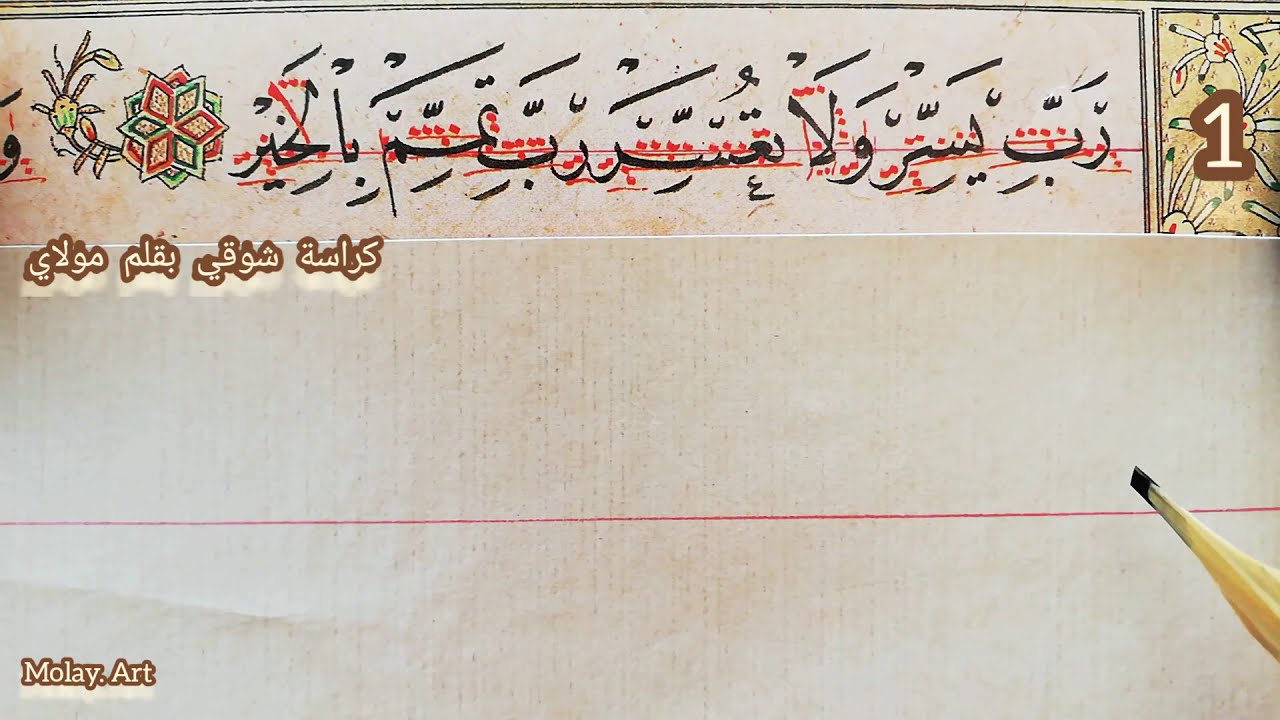 رَبِّ يَسِّرْ وَلَا تُعَسِّرْ رَبِّ تَمِّمْ بِالْخَيْرِ
1
كراسة شوقي بقلم مولاي
Molay. Art